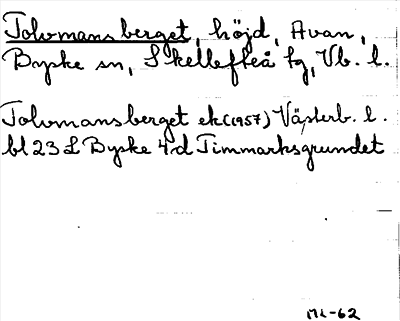 Tolvmansberget, höjd, Avan,
Byske sn, Skellefteå tg, Vb. l.
Tolvmansberget ek (1957) Västerb. l.
bl 23 L Byske 4d Timmarksgrundet
ML-62